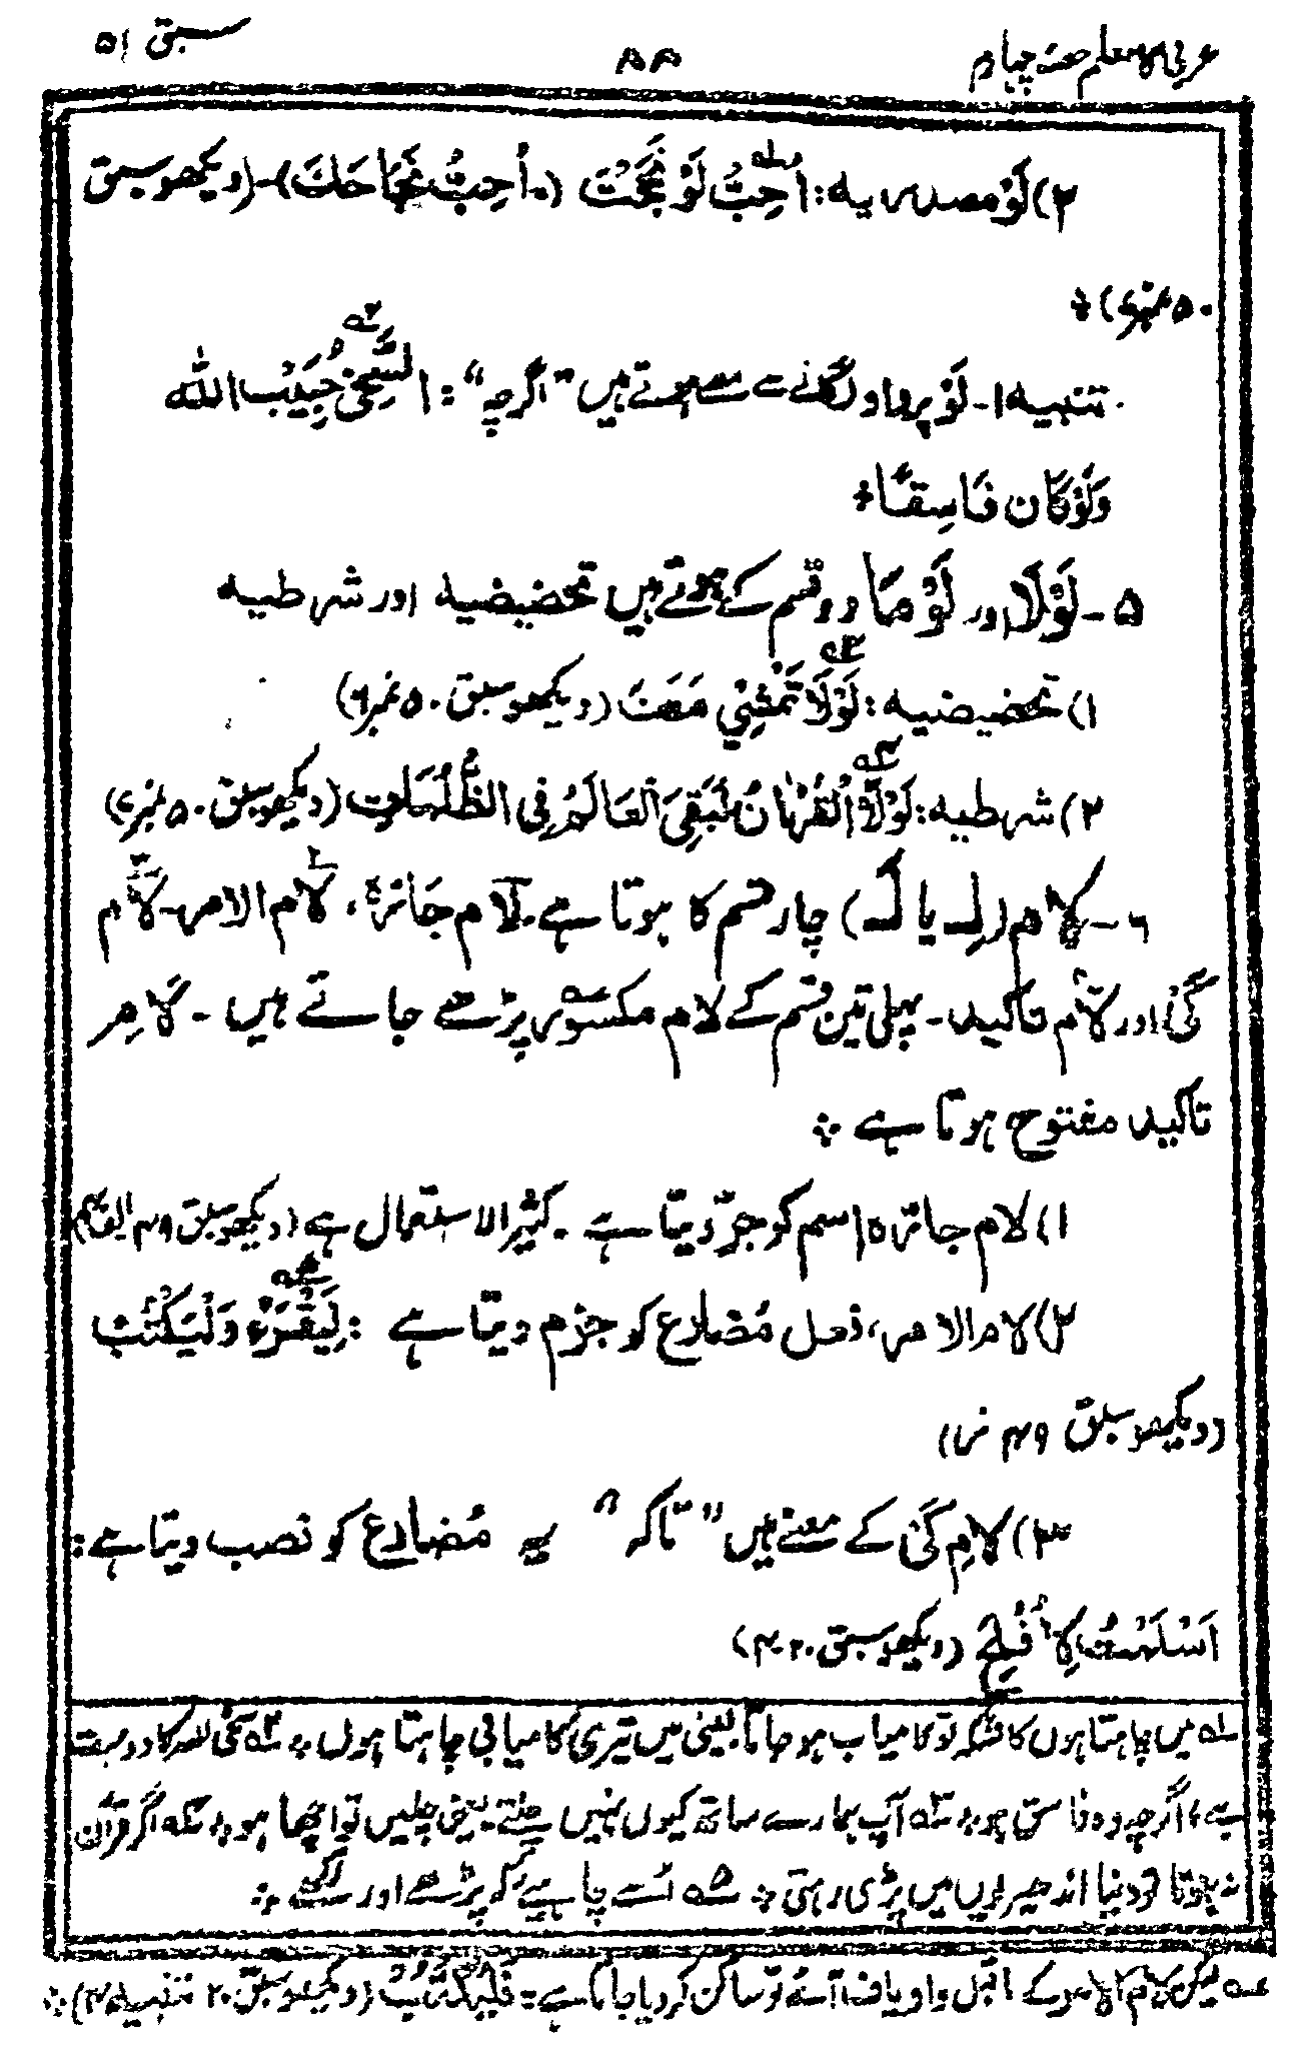 عربی کا معلم حصہ چہارم ۸۸ سبق ۵۱
۲) لَوْ مصدریہ: اُحِبُّ لَوْ نَجَحْتَ (= اُحِبُّ نَجَاحَكَ)۔ (دیکھو سبق
۵۰ نمبر ۶) ÷
تنبیہ ۱۔ لَوْ پر واو لگانے سے معنے ہوتے ہیں "اگرچہ": السَّخِیُّ حَبِیْبُ اللہ
وَلَوْ کَانَ فَاسِقًا ÷
۵ ۔ لَوْلَا اور لَوْمَا دو قسم کے ہوتے ہیں تحضیضیہ اور شرطیہ
۱) تحضیضیہ: لَوْلَا تَمْشِیْ مَعَنَا (دیکھو سبق ۵۰ نمبر ۶)
۲) شرطیہ: لَوْلَا الْقُرْاٰنُ لَبَقِیَ الْعَالَمُ فِی الظُّلُمَاتِ (دیکھو سبق ۵۰ نمبر ۷)
۶ ۔ لام (لِـ یا لَـ) چار قسم کا ہوتا ہے۔ لام جارّہ، لام الامر۔ لام
کَیْ اور لام تاکید۔ پہلی تین قسم کے لام مکسور پڑھے جاتے ہیں ۔ لامِ
تاکید مفتوح ہوتا ہے ÷
۱) لام جارّہ اسم کو جرّ دیتا ہے ۔ کثیر الاستعمال ہے (دیکھو سبق ۴۹ الف
۲) لام الامر، فعل مُضارع کو جزم دیتا ہے : لِیَقْرَءْ وَلْیَکْتُبْ
(دیکھو سبق ۴۹
۳) لامِ کَیْ کے معنے ہیں "تاکہ" یہ مُضارع کو نصب دیتا ہے:
اَسْلَمْتُ لِاُفْلِحَ (دیکھو سبق ۲۰۔۴)
۱؎ میں چاہتا ہوں کاشکہ تو کامیاب ہو جاتا۔ یعنی میں تیری کامیابی چاہتا ہوں ÷ ۲؎ سخی اللہ کا دوست
ہے، اگرچہ وہ فاسق ہو ÷ ۳؎ آپ ہمارے ساتھ کیوں نہیں چلتے۔ یعنی چلیں تو اچھا ہو ÷ ۴؎ اگر قرآن
نہ ہوتا تو دنیا اندھیریوں میں پڑی رہتی ÷ ۵؎ اُسے چاہیے کہ پڑھے اور لکھے ÷
عہ لیکن لام الامر کے ماقبل واو یا ف آئے تو ساکن کر دیا جاتا ہے: فَلْیَکْتُبْ (دیکھو سبق ۲۰ تنبیہ ۴) ÷